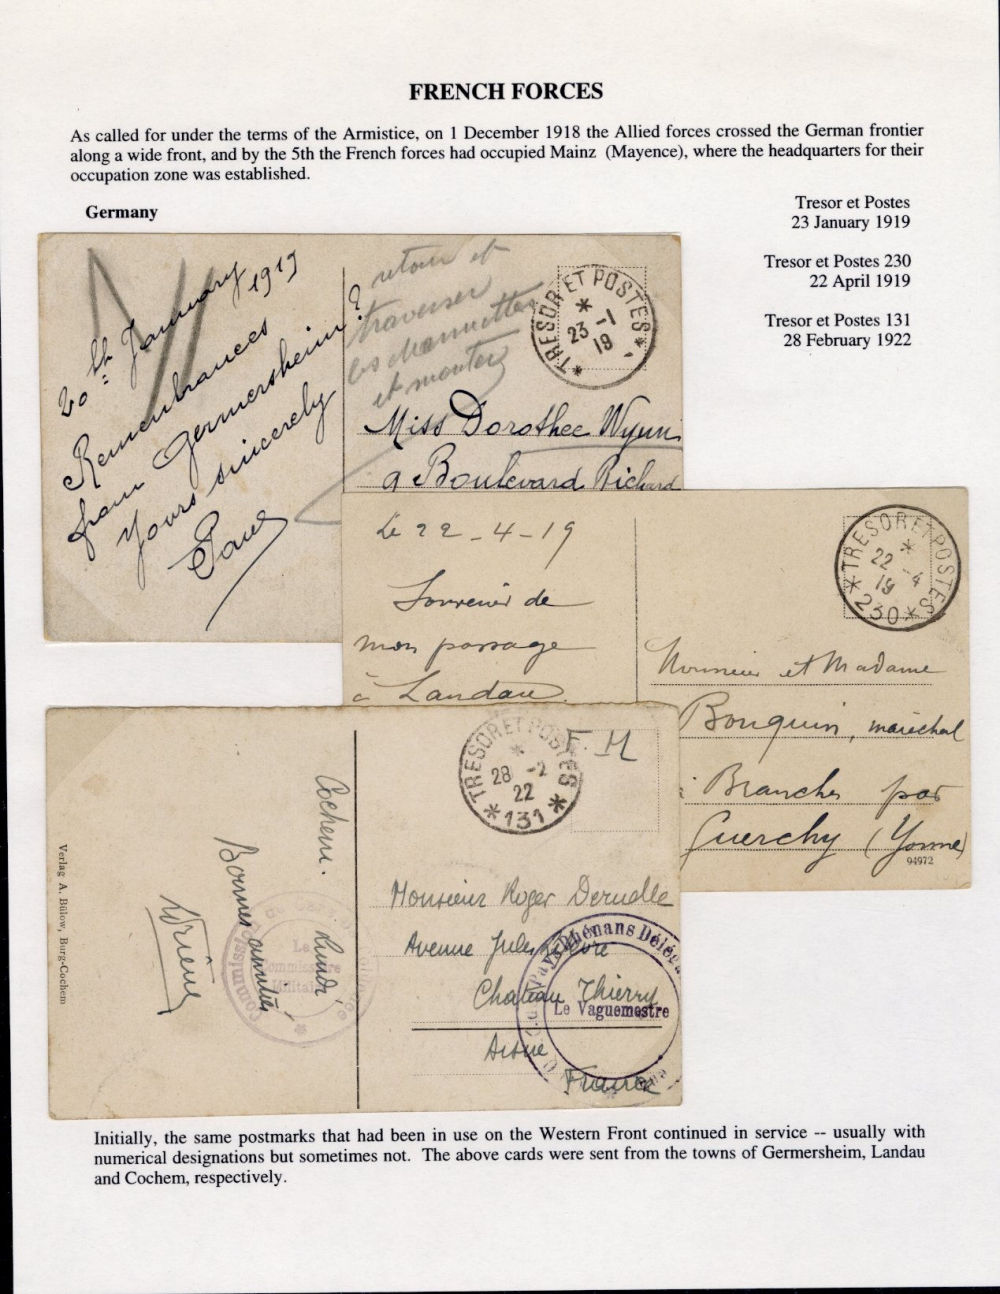 FRENCH FORCES
As called for under the terms of the Armistice, on 1 December 1918 the Allied forces crossed the German frontier
along a wide front, and by the 5th the French forces had occupied Mainz (Mayence), where the headquarters for their
occupation zone was established.
Germany
Tresor et Postes
23 January 1919
Tresor et Postes 230
22 April 1919
Tresor et Postes 131
28 February 1922
20th January
1919
Remembrances
from Germersheim
Yours sincerely
Paul
retour et
traverser
et monter
TRESOR ET POSTES
23 -1
19
Miss Dorothee Wynn
9 Boulevard Richard
Le 22-4-19
Souvenir de
mon passage
à Landau
TRESOR ET POSTES
22 -4
19
*230*
Monsieur et Madame
Bouquin, maréchal
à Branches par
Guerchy (Yonne)
94972
Verlag A. Bülow, Burg-Cochem
Cochem. Lundi
Bonnes amitiés
TRESOR ET POSTES
28 -2
22
*131*
F.M
Monsieur Roger Deruelle
Avenue Jules
Chateau Thierry
Aisne
France
Le
Commissaire
Militaire
Le Vaguemestre
Initially, the same postmarks that had been in use on the Western Front continued in service -- usually with
numerical designations but sometimes not. The above cards were sent from the towns of Germersheim, Landau
and Cochem, respectively.